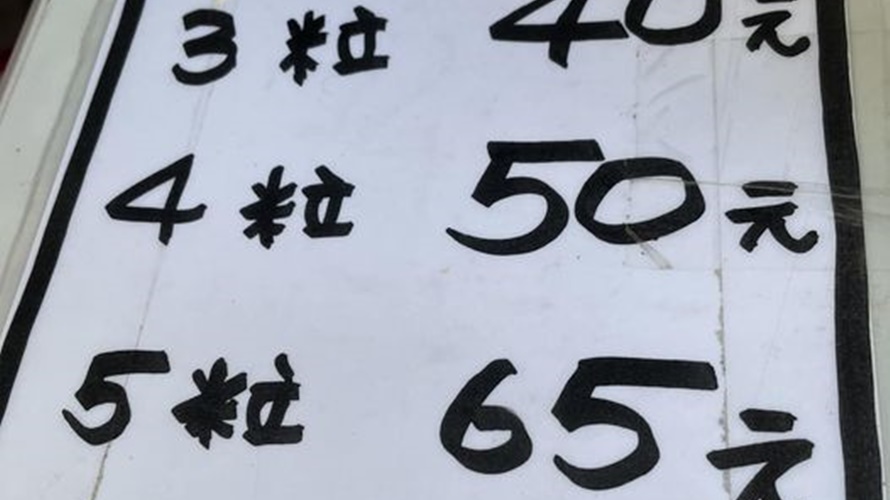 3粒 40元
4粒 50元
5粒 65元